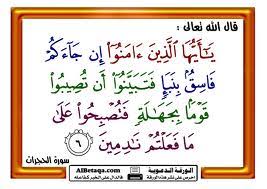 قال الله تعالى :
يَـٰٓأَيُّهَا ٱلَّذِينَ ءَامَنُوٓا۟ إِن جَآءَكُمْ
فَاسِقُۢ بِنَبَإٍ فَتَبَيَّنُوٓا۟ أَن تُصِيبُوا۟
قَوْمَۢا بِجَهَـٰلَةٍ فَتُصْبِحُوا۟ عَلَىٰ
مَا فَعَلْتُمْ نَـٰدِمِينَ ٦
سورة الحجرات
الورقة الدعوية
AlBetaqa.com